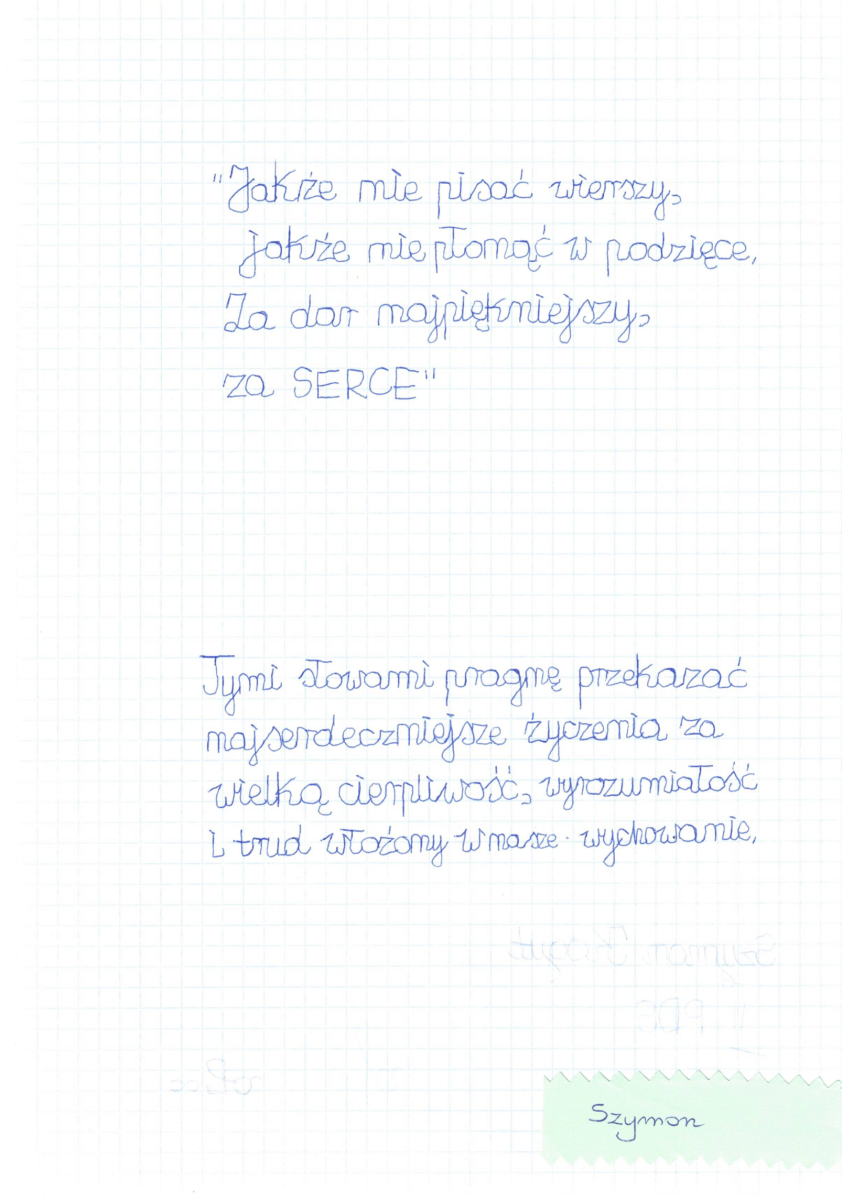 "Jakże nie pisać wierszy,
jakże nie płonąć w podzięce,
Za dar najpiękniejszy,
za SERCE"
Tymi słowami pragnę przekazać
najserdeczniejsze życzenia za
wielką cierpliwość, wyrozumiałość
i trud włożony w nasze wychowanie.
Szymon